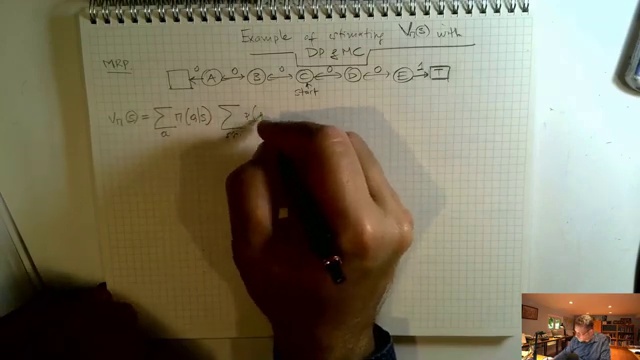 Example of estimating Vπ(s) with
DP & MC
MRP
0 A 0 B 0 C 0 D 0 E 1 T
start
Vπ(s) = ∑ π(a|s) ∑ p(s
a